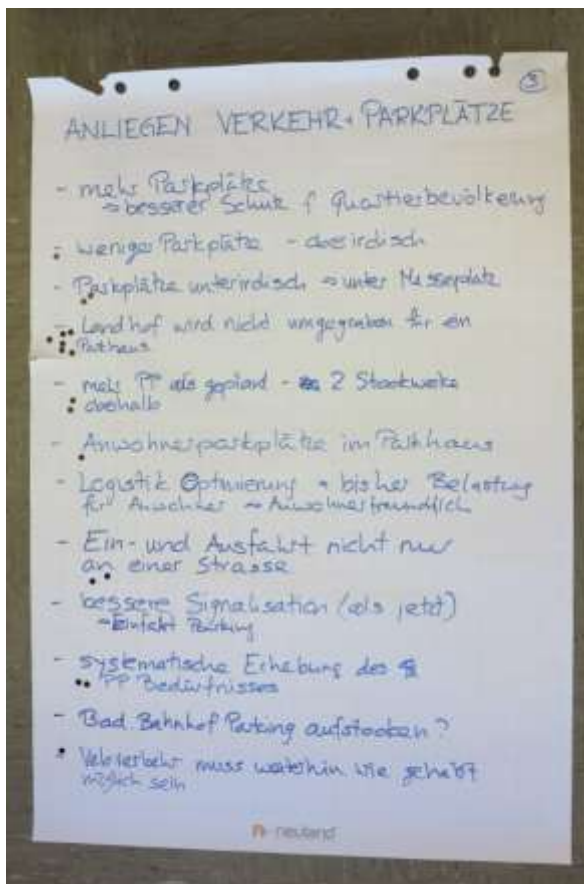 3
ANLIEGEN VERKEHR + PARKPLÄTZE
- mehr Parkplätze
→ besserer Schutz f Quartierbevölkerung
- weniger Parkplätze - oberirdisch
- Parkplätze unterirdisch → unter Messeplatz
- Landhof wird nicht umgegraben für ein
Parkhaus
- mehr PP als geplant - 2 Stockwerke
oberhalb
- Anwohnerparkplätze im Parkhaus
- Logistik Optimierung → bisher Belastung
für Anwohner → Anwohnerfreundlich
- Ein- und Ausfahrt nicht nur
an einer Strasse
- bessere Signalisation (als jetzt)
→ Einfahrt Parking
- systematische Erhebung des
PP Bedürfnisses
- Bad. Bahnhof Parking aufstocken?
- Veloverkehr muss weiterhin wie gehabt
möglich sein
neuland